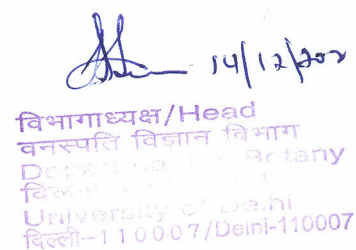 14/12/202
विभागाध्यक्ष/Head
वनस्पति विज्ञान विभाग
Botany
University of Delhi
दिल्ली--110007/Delhi-110007